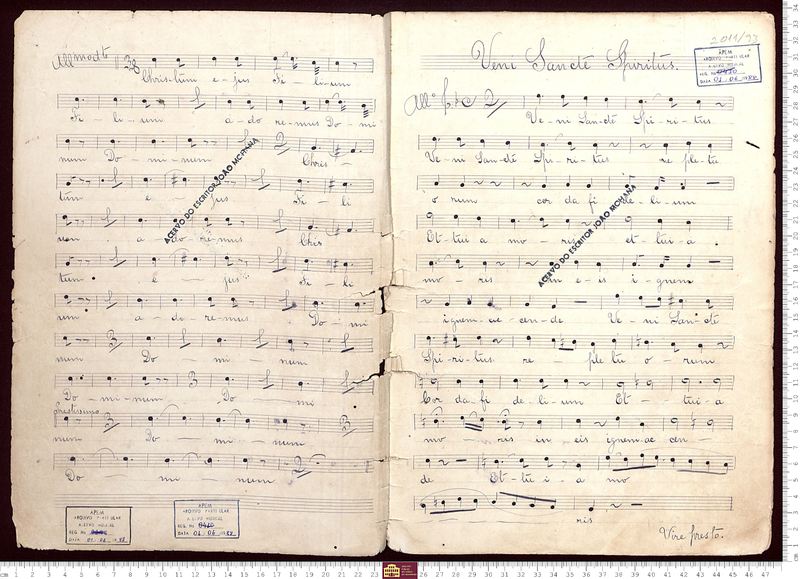 All modto 38
Chris-tum e-jus Fi-li-um
Fi-li-um a-do-re-mus Do-mi
num Do-mi-num Chris-
tum e-jus Fi-li
um a-do-re-mus Chris
tum e-jus Fi-li
um a-do-re-mus Do-mi
num Do-mi-num
Do-mi-num Do-mi
Prestissimo
num Do-mi-num
Do-mi-num
ACERVO DO ESCRITOR JOÃO MOHANA
APEM
ARQUIVO PARTICULAR
ACERVO MUSICAL
REG. No
DATA 01 06 1988
APEM
ARQUIVO PARTICULAR
ACERVO MUSICAL
REG. No
DATA 01 06 1988
2011/93
APEM
ARQUIVO PARTICULAR
ACERVO MUSICAL
REG. No
DATA 01 06 1988
Veni Sancte Spiritus.
Allo
Ve-ni San-cte Spi-ri-tus
Ve-ni San-cte Spi-ri-tus re ple-tu
o rum cor da fi de-li-um
Et-tui a mo-ris et-tui-a
mo-ris in e-is i-gnem
ignem-ac-cen-de Ve-ni San-cte
Spi-ri-tus re-ple tu o-rum
Cor da-fi de-li-um Et-tui-a
mo-ris in eis ignem ac cen-
de Et-tu i-a mo
ris
Vire presto.
ACERVO DO ESCRITOR JOÃO MOHANA